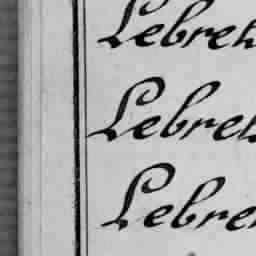 Lebreh
Lebret
Lebrer